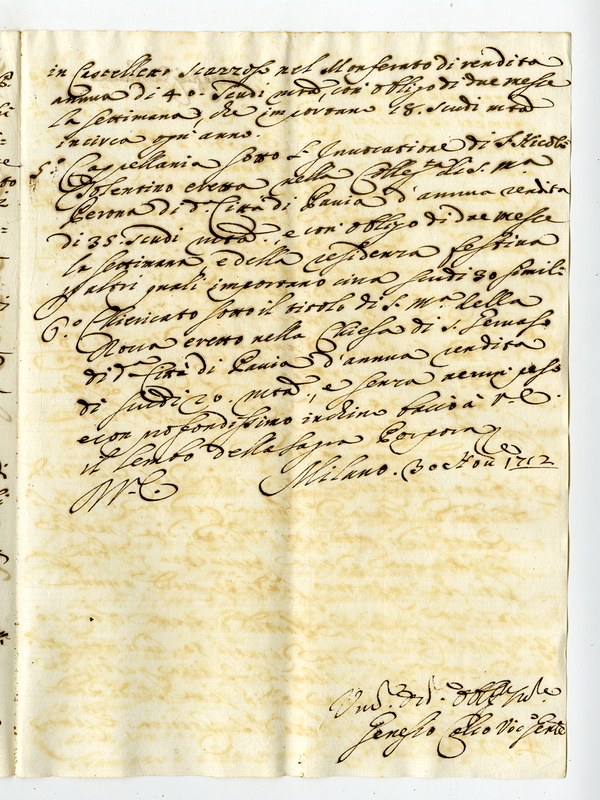 in Castelletto Scazzoso nel Monferato di rendita
annua di 40. Scudi mta, con obligo di due messe
la settimana, che importano 18. scudi mta
incirca ogni anno.
5.° Cappellania sotto l'Invocatione di S. Nicola
Tolentino eretta nella Colleg.ta di S. Ma.
Perona di d.a Città di Pavia d'annua rendita
di 35. scudi mta, e con obligo di due messe
la settimana, e della residenza festiva
altri quali importano circa scudi 30 simili
6.° Chiericato sotto il titolo di S. Ma. della
Rocca eretto nella Chiesa di S. Gervaso
di d.a Città di Pavia d'annua rendita
di scudi 20. mta, e senza verun peso
e con profondissimo inchino baccio à V. E.
il lembo della Sagra Porpora
V. E. Milano. 30 Nov 1712
Genesio Celio